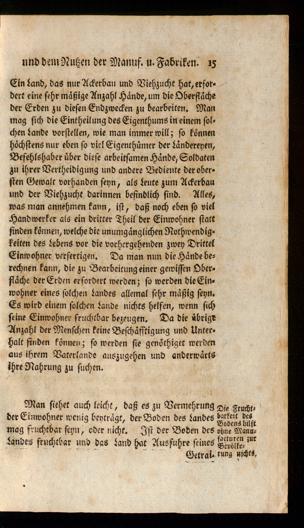 und dem Nutzen der Manuf. u. Fabriken. 15
Ein Land, das nur Ackerbau und Viehzucht hat, erfor-
dert eine sehr mäßige Anzahl Hände, um die Oberfläche
der Erden zu diesen Endzwecken zu bearbeiten. Man
mag sich die Eintheilung des Eigenthums in einem sol-
chen Lande vorstellen, wie man immer will; so können
höchstens nur eben so viel Eigenthümer der Ländereyen,
Befehlshaber über diese arbeitsamen Hände, Soldaten
zu ihrer Vertheidigung und andere Bediente der ober-
sten Gewalt vorhanden seyn, als Leute zum Ackerbau
und der Viehzucht darinnen befindlich sind. Alles,
was man annehmen kann, ist, daß noch eben so viel
Handwerker als ein dritter Theil der Einwohner statt
finden können, welche die unumgänglichen Nothwendig-
keiten des Lebens vor die vorhergehenden zwey Drittel
Einwohner verfertigen. Da man nun die Hände be-
rechnen kann, die zu Bearbeitung einer gewissen Ober-
fläche der Erden erfordert werden; so werden die Ein-
wohner eines solchen Landes allemal sehr mäßig seyn.
Es wird einem solchen Lande nichts helfen, wenn sich
seine Einwohner fruchtbar bezeugen. Da die übrige
Anzahl der Menschen keine Beschäfftigung und Unter-
halt finden können; so werden sie genöthiget werden
aus ihrem Vaterlande auszugehen und anderwärts
ihre Nahrung zu suchen.
Man siehet auch leicht, daß es zu Vermehrung
der Einwohner wenig beyträgt, der Boden des Landes
mag fruchtbar seyn, oder nicht. Ist der Boden des
Landes fruchtbar und das Land hat Ausfuhre seines
Getrai-
Die Frucht-
barkeit des
Bodens hilft
ohne Manu-
facturen zur
Bevölke-
rung nichts.